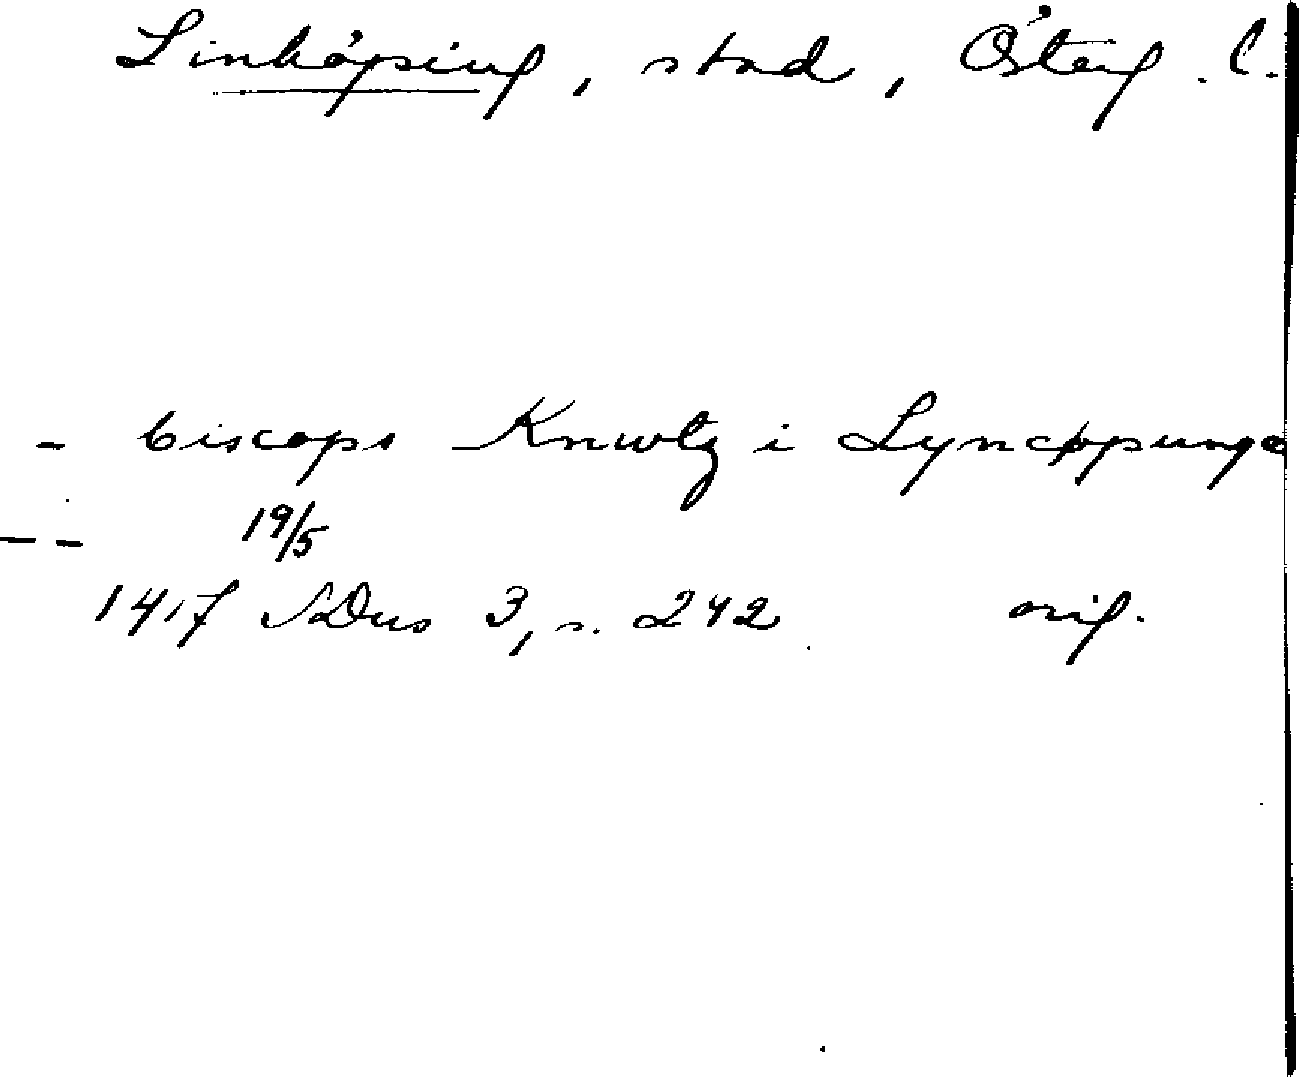 Linköping, stad, Österg. l.
- biscops Knwtz i Lyncøpunge
-- 19/5
1417 SDns 3, s. 242 orig.